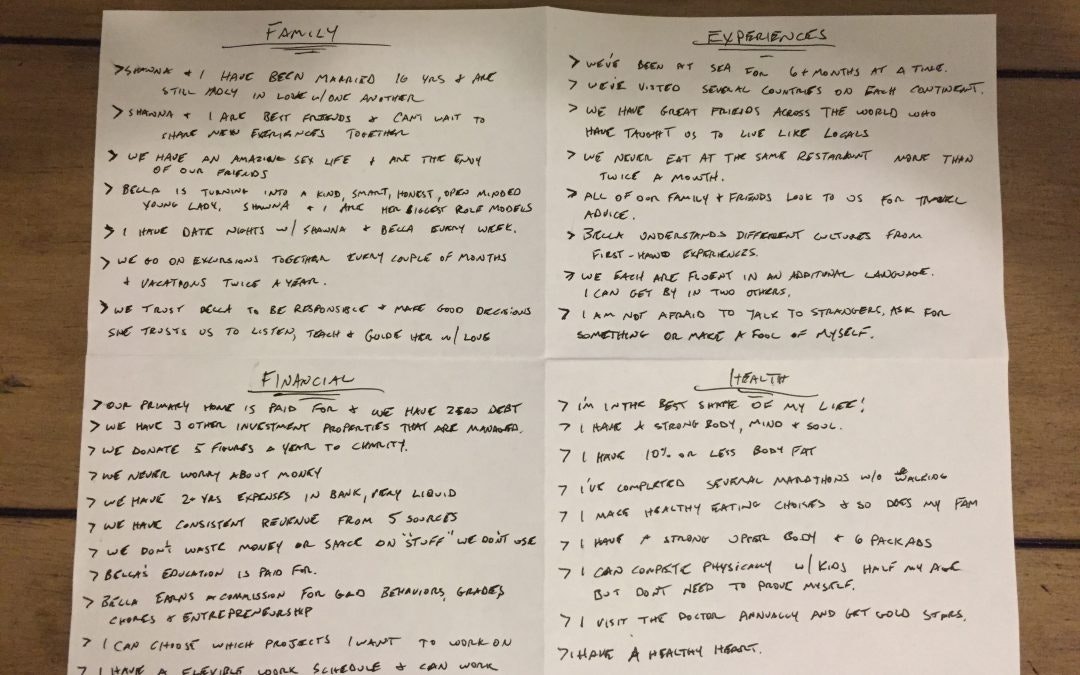 FAMILY
> SHAWNA & I HAVE BEEN MARRIED 16 YRS & ARE
STILL MADLY IN LOVE W/ ONE ANOTHER
> SHAWNA & I ARE BEST FRIENDS & CAN'T WAIT TO
SHARE NEW EXPERIENCES TOGETHER
> WE HAVE AN AMAZING SEX LIFE & ARE THE ENVY
OF OUR FRIENDS
> BELLA IS TURNING INTO A KIND, SMART, HONEST, OPEN MINDED
YOUNG LADY. SHAWNA & I ARE HER BIGGEST ROLE MODELS
> I HAVE DATE NIGHTS W/ SHAWNA & BELLA EVERY WEEK.
> WE GO ON EXCURSIONS TOGETHER EVERY COUPLE OF MONTHS
& VACATIONS TWICE A YEAR.
> WE TRUST BELLA TO BE RESPONSIBLE & MAKE GOOD DECISIONS
SHE TRUSTS US TO LISTEN, TEACH & GUIDE HER W/ LOVE
EXPERIENCES
> WE'VE BEEN AT SEA FOR 6+ MONTHS AT A TIME.
> WE'VE VISTED SEVERAL COUNTRIES ON EACH CONTINENT.
> WE HAVE GREAT FRIENDS ACROSS THE WORLD WHO
HAVE TAUGHT US TO LIVE LIKE LOCALS
> WE NEVER EAT AT THE SAME RESTARAUNT MORE THAN
TWICE A MONTH.
> ALL OF OUR FAMILY & FRIENDS LOOK TO US FOR TRAVEL
ADVICE.
> BELLA UNDERSTANDS DIFFERENT CULTURES FROM
FIRST-HAND EXPERIENCES.
> WE EACH ARE FLUENT IN AN ADDITONAL LANGUAGE.
I CAN GET BY IN TWO OTHERS.
> I AM NOT AFRAID TO TALK TO STRANGERS, ASK FOR
SOMETHING OR MAKE A FOOL OF MYSELF.
FINANCIAL
> OUR PRIMARY HOME IS PAID FOR & WE HAVE ZERO DEBT
> WE HAVE 3 OTHER INVESTMENT PROPERTIES THAT ARE MANAGED.
> WE DONATE 5 FIGURES A YEAR TO CHARITY.
> WE NEVER WORRY ABOUT MONEY
> WE HAVE 2+ YRS EXPENSES IN BANK, VERY LIQUID
> WE HAVE CONSISTENT REVENUE FROM 5 SOURCES
> WE DON'T WASTE MONEY OR SPACE ON "STUFF" WE DON'T USE
> BELLA'S EDUCATION IS PAID FOR.
> BELLA EARNS A COMMISSION FOR GOOD BEHAVIORS, GRADES,
CHORES & ENTREPRENEURSHIP
> I CAN CHOOSE WHICH PROJECTS I WANT TO WORK ON
> I HAVE A FLEXIBLE WORK SCHEDULE & CAN WORK
HEALTH
> I'M IN THE BEST SHAPE OF MY LIFE!
> I HAVE A STRONG BODY, MIND & SOUL.
> I HAVE 10% OR LESS BODY FAT
> I'VE COMPLETED SEVERAL MARATHONS W/O WALKING
> I MAKE HEALTHY EATING CHOISES & SO DOES MY FAM
> I HAVE A STRONG UPPER BODY & 6 PACK ABS
> I CAN COMPETE PHYSICALLY W/ KIDS HALF MY AGE
BUT DON'T NEED TO PROVE MYSELF.
> I VISIT THE DOCTOR ANNUALLY AND GET GOLD STARS.
> I HAVE A HEALTHY HEART.